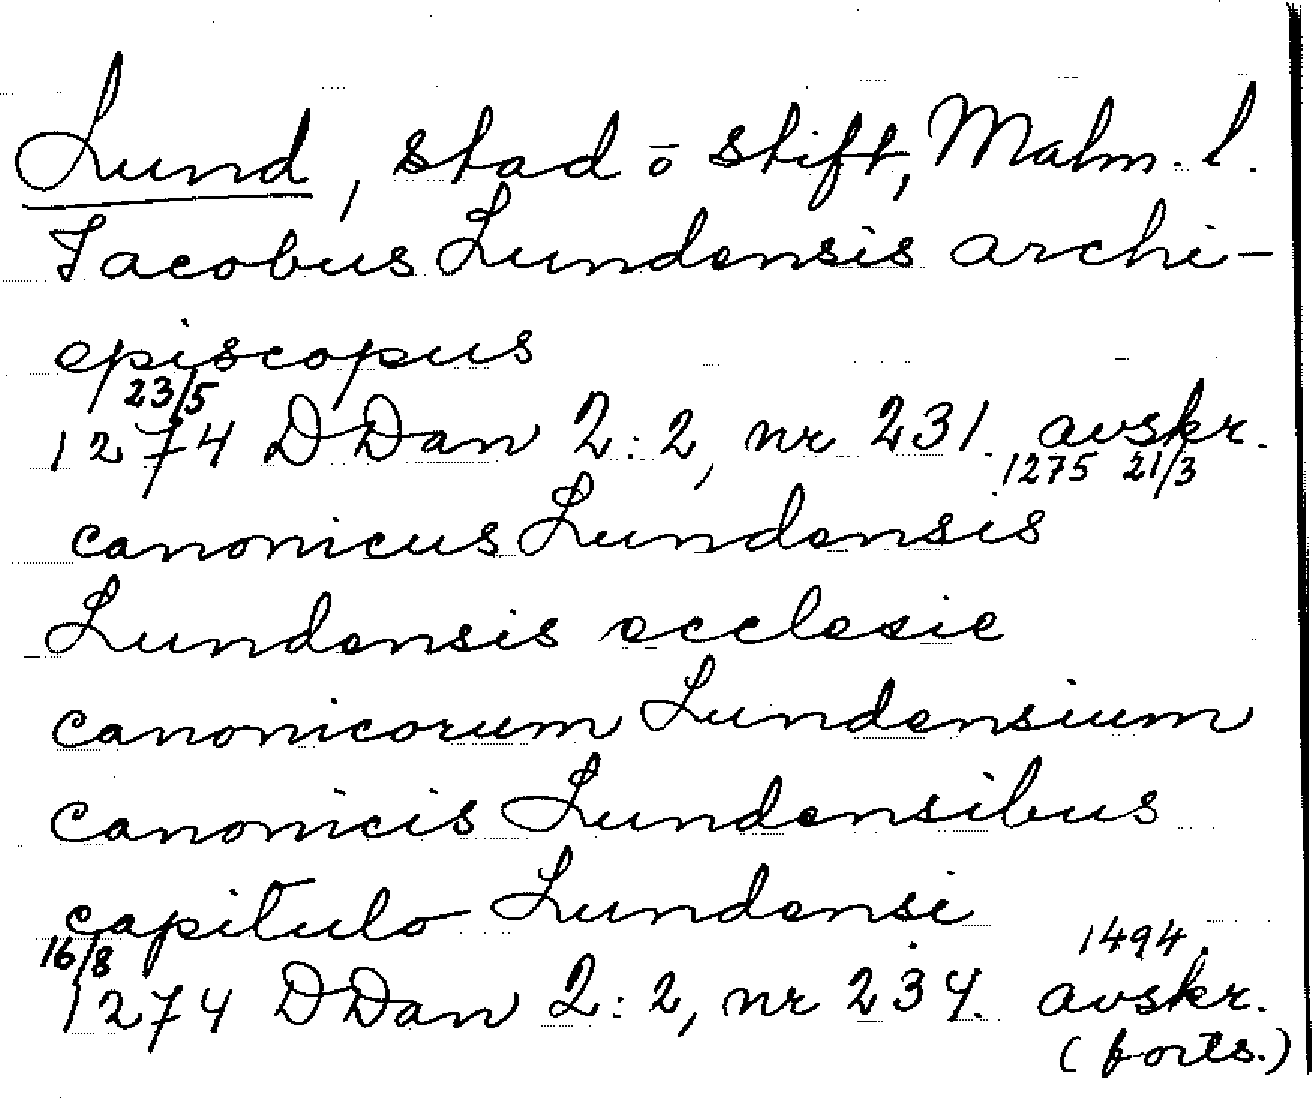 Lund, stad o stift, Malm. l.
Jacobus Lundensis archi-
episcopus
23/5
1274 DDan 2:2, nr 231. avskr.
1275 21/3
canonicus Lundensis
Lundensis ecclesie
canonicorum Lundensium
canonicis Lundensibus
capitulo Lundensi
16/8 1494.
1274 DDan 2:2, nr 234. avskr.
(forts.)